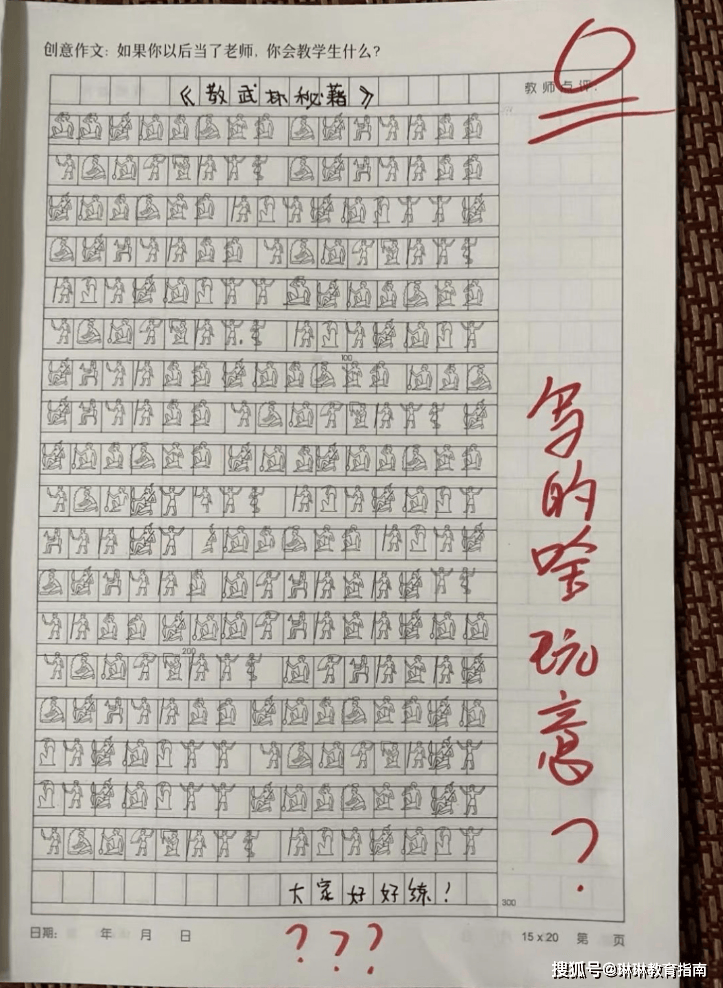 创意作文：如果你以后当了老师，你会教学生什么？
《武秘籍》
教师点评：
0
100
200
写的啥玩意？
大家好好练！
300
日期： 年 月 日
15 x 20 第 页
？？？
搜狐号@琳琳教育指南